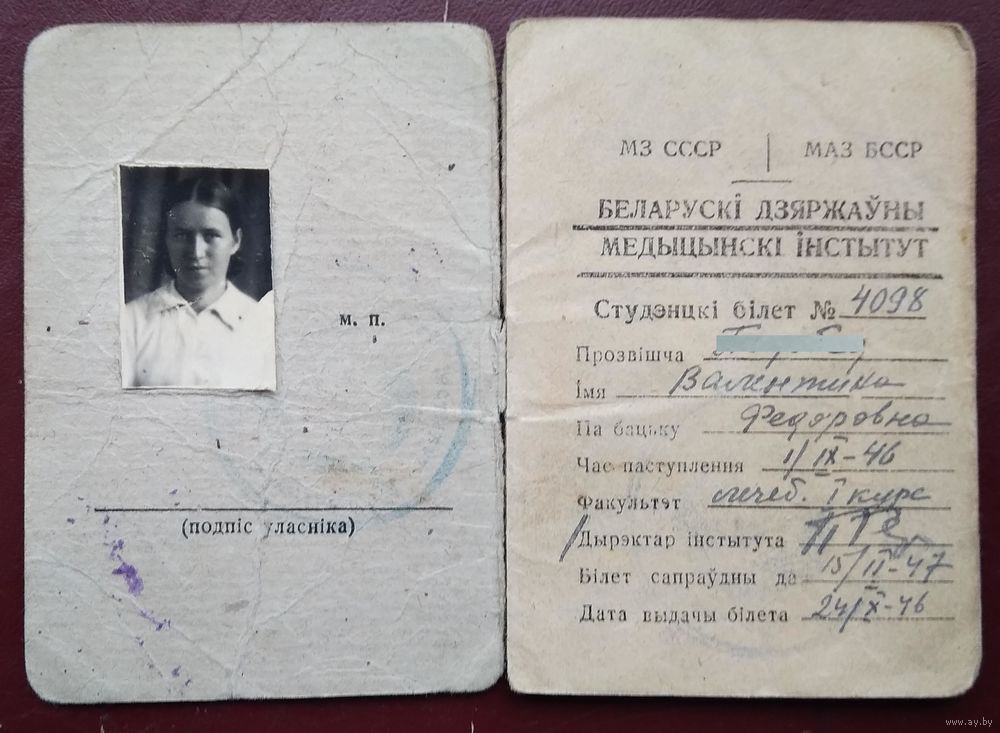 м. п.
(подпіс уласніка)
МЗ СССР | МАЗ БССР
БЕЛАРУСКІ ДЗЯРЖАЎНЫ
МЕДЫЦЫНСКІ ІНСТЫТУТ
Студэнцкі білет № 4098
Прозвішча
Імя Валентина
Па бацьку Федоровна
Час паступлення 1/IX-46
Факультэт лечеб. I курс
Дырэктар інстытута
Білет сапраўдны да 15/II-47
Дата выдачы білета 24/X-46
www.ay.by